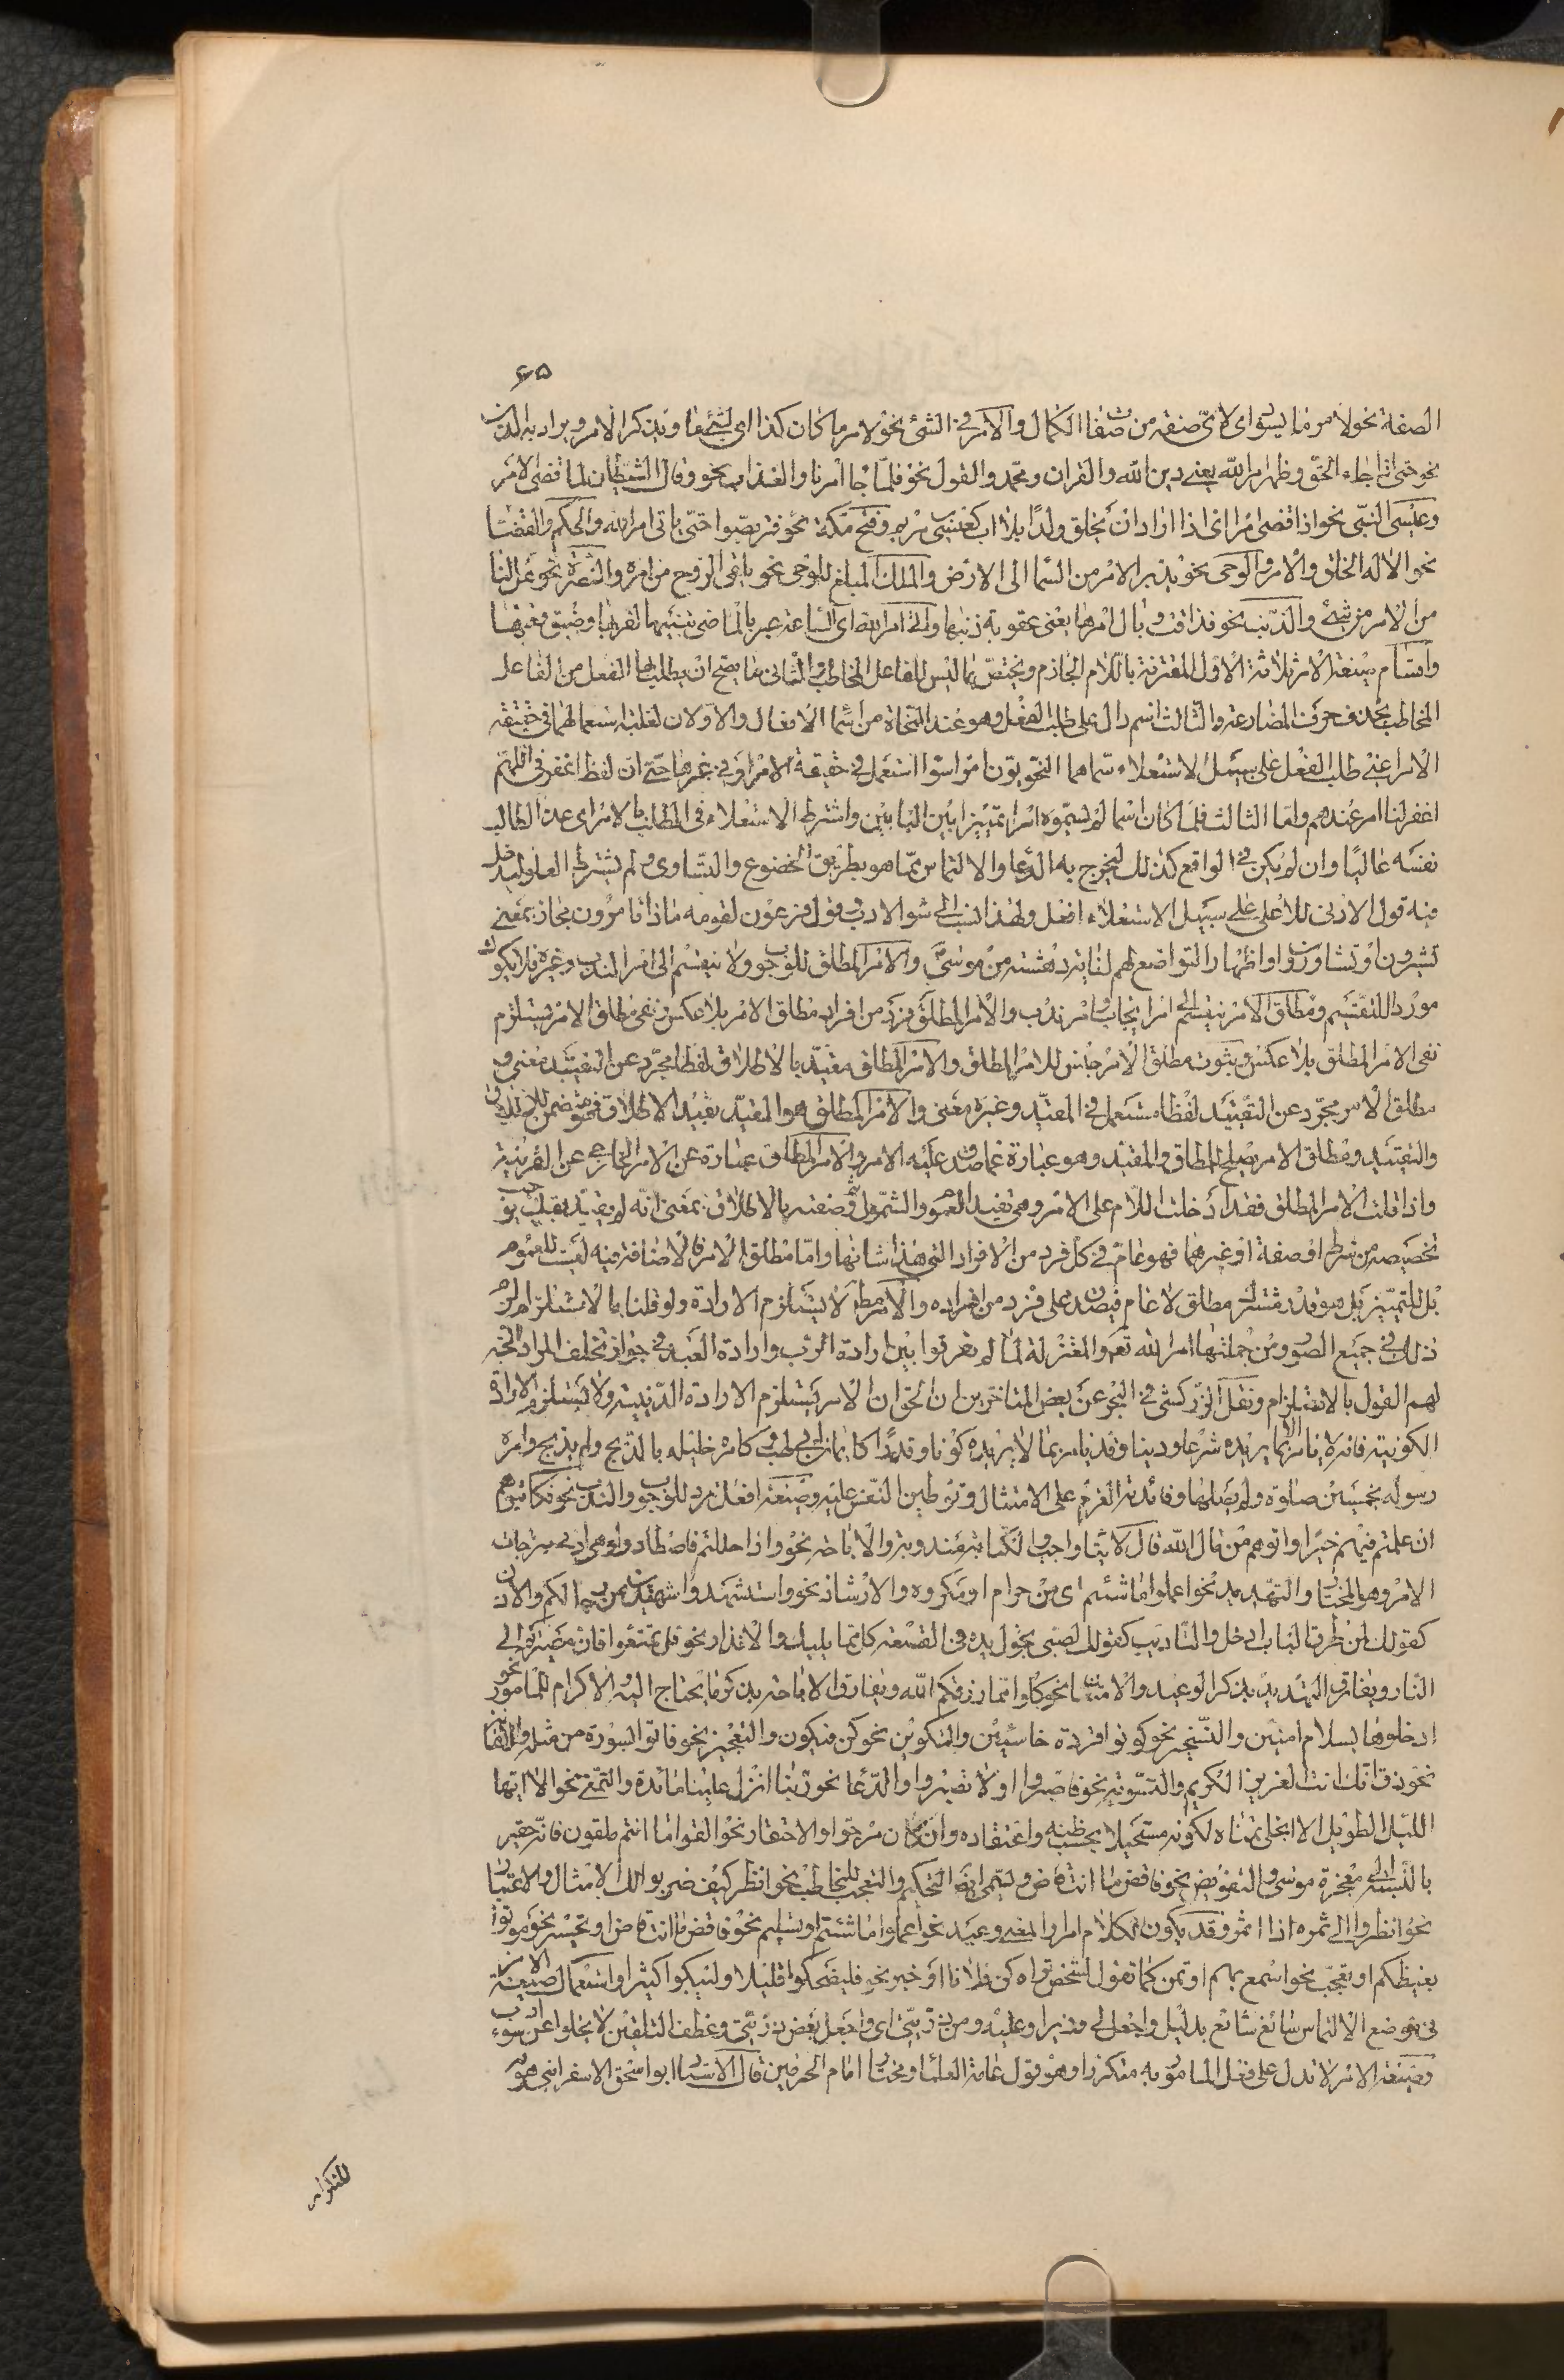 ٤٥
الصفة نحو لامر ما يسود اى لاى صفة من صفات الكمال والامر فى الشئ نحو لامر ما كان كذا اى لشئ ما ويذكر الامر ويراد به الدين
نحو حتى اذا جاء الحق وظهر امر الله يعنى دين الله والقران ومحمد والقول نحو فلما جا امرنا والعذاب نحو وقال الشيطان لما قضى الامر
وعيسى النبى نحو اذا قضى امرا اى اذا اراد ان يخلق ولدا بلا اب كعيسى بن مريم وفتح مكة نحو فتربصوا حتى ياتى امر الله والحكم والقضا
نحو الا له الخلق والامر والوحى نحو يدبر الامر من السما الى الارض والملك المبلغ للوحى نحو يلقى الروح من امره والنصرة نحو هل لنا
من الامر من شئ والذنب نحو فذاقت وبال امرها يعنى عقوبة ذنبها واتى امر الله اى الساعة عبر بالماضى تنبيها لقربها وضيق وقتها
واقسام صيغة الامر ثلاثة الاول المقترنة باللام الجازم ويختص بما ليس للفاعل المخاطب والثانى ما يصح ان يطلب بها الفعل من الفاعل
المخاطب بحذف حرف المضارعة والثالث اسم دال على طلب الفعل وهو عند النحاة من اسما الافعال والاولان لغلبة استعمالهما فى حقيقة
الامر اعنى طلب الفعل على سبيل الاستعلاء سماهما النحويون امرا سوا استعمل فى حقيقة الامر او فى غيرها حتى ان لفظ اغفر فى اللهم
اغفر لنا امر عندهم واما الثالث فلما كان اسما لم يسموه امرا تمييزا بين البابين واشترط الاستعلاء فى الطالب بالامر اى عد الطالب
نفسه عاليا وان لم يكن فى الواقع كذلك ليخرج به الدعا والالتماس مما هو بطريق الخضوع والتساوى ولم يشترط العلو ليدخل
فيه قول الادنى للاعلى على سبيل الاستعلاء افعل ولهذا نسب الى سوء الادب وقول فرعون لقومه ماذا تامرون مجاز بمعنى
تشيرون او تشاورون او اظهار التواضع لهم لغاية دهشته من موسى والامر المطلق للوجوب ولا ينقسم الى امر الندب وغيره فلا يكون
موردا للتقسيم ومطلق الامر ينقسم الى امر ايجاب وامر ندب والامر المطلق فرد من افراد مطلق الامر بلا عكس ونفى مطلق الامر يستلزم
نفى الامر المطلق بلا عكس وثبوت مطلق الامر جنس للامر المطلق والامر المطلق مقيد بالاطلاق لفظا مجرد عن التقييد معنى و
مطلق الامر مجرد عن التقييد لفظا مستعمل فى المقيد وغيره معنى والامر المطلق هو المقيد بقيد الاطلاق فهو متضمن للاطلاق
والتقييد ومطلق الامر يصلح للمطلق والمقيد وهو عبارة عما صدق عليه الامر والامر المطلق عبارة عن الامر الخارجى عن القرينية
واذا قلت الامر المطلق فقد ادخلت اللام على الامر وهى تفيد العموم والشمول ثم وصفته بالاطلاق بمعنى انه لم يقيد بقيد يوجب
تخصيصه من شرط او صفة او غيرهما فهو عام فى كل فرد من الافراد التى هذا شانها واما مطلق الامر فالاضافة فيه ليست للعموم
بل للتمييز بل هو قدر مشترك مطلق لا عام فيصدق على فرد من افراده والامر مطلقا لا يستلزم الارادة ولو قلنا بالاستلزام لزم
ذلك فى جميع الصور ومن جملتها امر الله تعم والمعتزلة لما لم يفرقوا بين ارادة الرب وارادة العبد فى جواز تخلف المراد اتجه
لهم القول بالاستلزام ونقل الزركشى فى البحر عن بعض المتاخرين ان الحق ان الامر يستلزم الارادة الدينية ولا يستلزم الارادة
الكونية فانه لا يامر الا بما يريده شرعا ودينا وقد يامر بما لا يريده كونا وقدرا كايمان ابى لهب وكامره خليله بالذبح ولم يذبح وامره
رسوله بخمسين صلوة ولم يصلها وفائدته العزم على الامتثال وتوطين النفس عليه وصيغة افعل ترد للوجوب والندب نحو فكاتبوهم
ان علمتم فيهم خيرا واتوهم من مال الله قال الايتاء واجب والكتابة مندوبة والاباحة نحو واذا حللتم فاصطادوا وهى ادنى درجات
الامر وهو المختار والتهديد نحو اعملوا ما شئتم اى من حرام او مكروه والارشاد نحو واستشهدوا شهيدين من رجالكم والاذن
كقولك لمن طرق الباب ادخل والتاديب كقولك لصبى يجول يده فى القصعة كل مما يليك والانذار نحو قل تمتعوا فان مصيركم الى
النار ويفارق التهديد بذكر الوعيد والامتنان نحو كلوا مما رزقكم الله ويفارق الاباحة بذكر ما يحتاج اليه والاكرام للمامور نحو
ادخلوها بسلام امنين والتسخير نحو كونوا قردة خاسئين والتكوين نحو كن فيكون والتعجيز نحو فاتوا بسورة من مثله والاهانة
نحو ذق انك انت العزيز الكريم والتسوية نحو فاصبروا او لا تصبروا والدعا نحو ربنا انزل علينا مائدة والتمنى نحو الا ايها
الليل الطويل الا انجلى تمناه لكونه مستحيلا بحسب ظنه واعتقاده وان كان مرجوا والاحتقار نحو القوا ما انتم ملقون فانه حقير
بالنسبة الى معجزة موسى والتفويض نحو فاقض ما انت قاض ويسمى ايضا التحكيم والتعجب للمخاطب نحو انظر كيف ضربوا لك الامثال والاعتبار
نحو انظروا الى ثمره اذا اثمر وقد يكون الكلام امرا والمعنى وعيد نحو اعملوا ما شئتم او تسليم نحو فاقض ما انت قاض او تحسير نحو موتوا
بغيظكم او تعجب نحو اسمع بهم او تمن كما تقول لشخص تراه كن فلانا او خبر نحو فليضحكوا قليلا وليبكوا كثيرا واستعمال صيغة الامر
فى موضع الالتماس شائع سائغ بدليل واجعل لى وزيرا وعليه ومن ذريتى اى واجعل بعض ذريتى وعطف التلقين لا يخلوا عن سوء ادب
وصيغة الامر لا تدل على فعل المامور به متكررا وهو قول عامة العلما ومختار امام الحرمين قال الاستاد ابو اسحق الاسفراينى هو
للتكرار